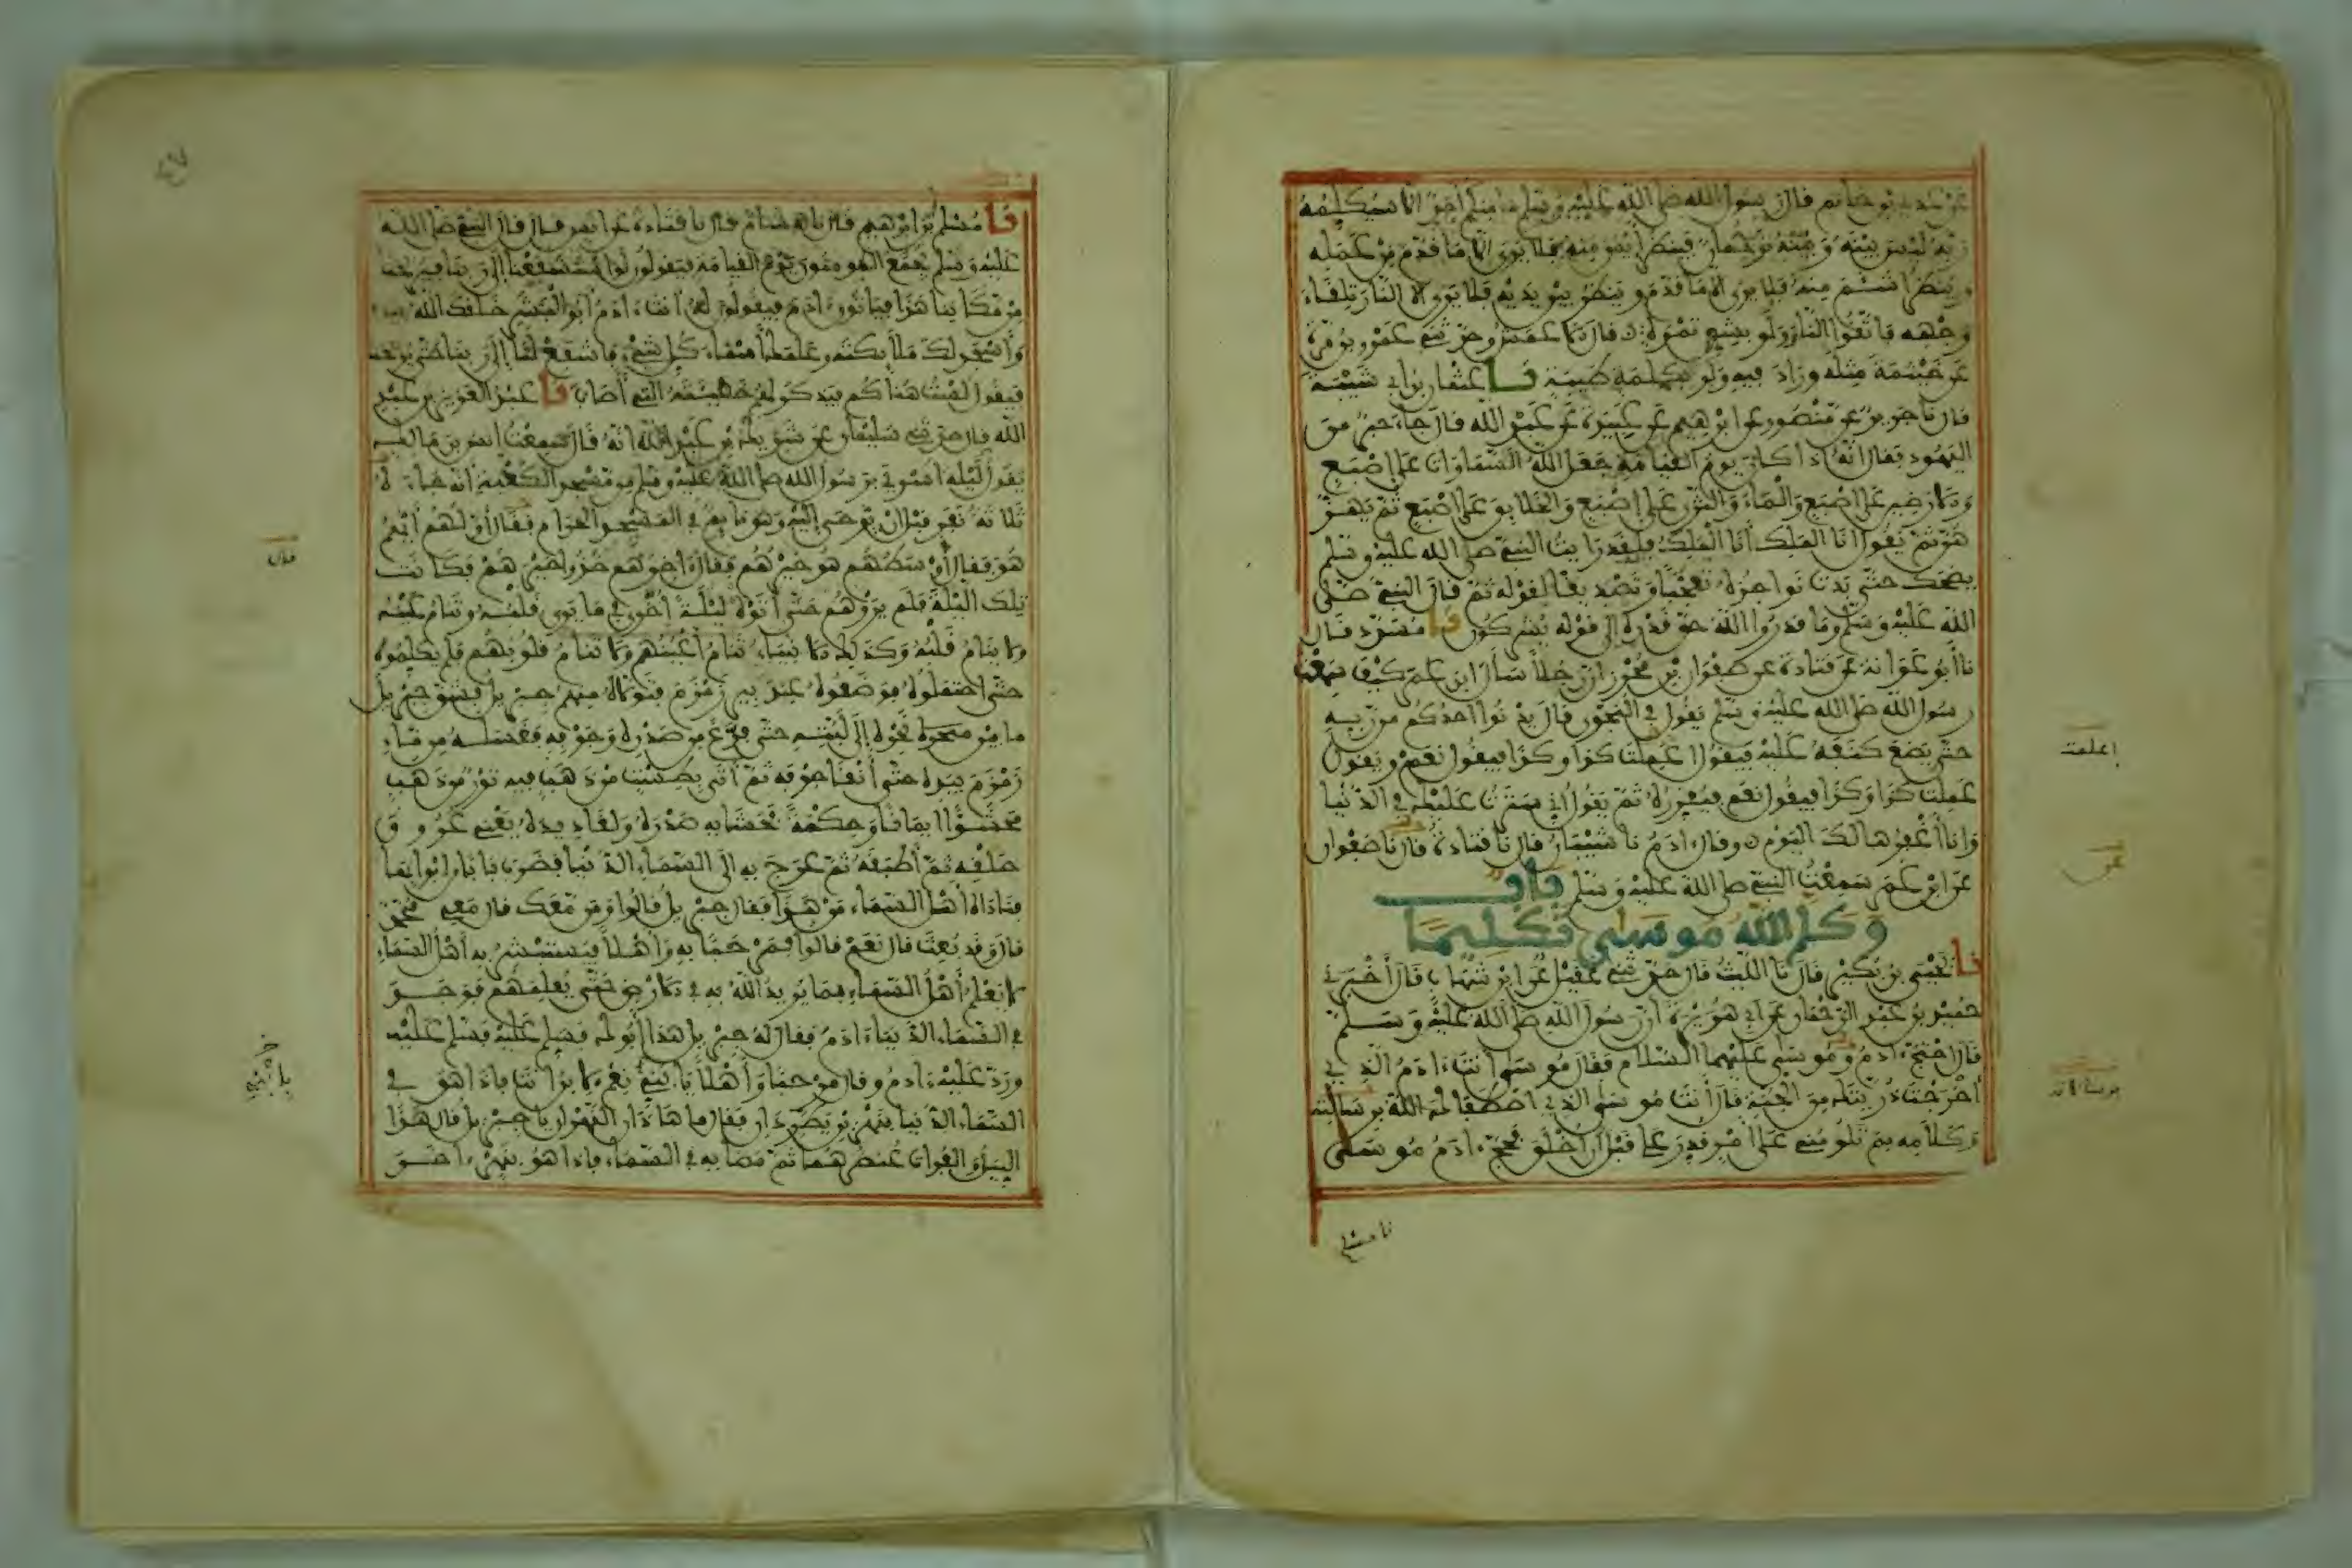 عن عدي بن حاتم قال قال رسول الله صلى الله عليه وسلم ما منكم أحد الا سيكلمه
ربه ليس بينه وبينه ترجمان فينظر أيمن منه فلا يرى الا ما قدم من عمله
وينظر أشئم منه فلا يرى الا ما قدم وينظر بين يديه فلا يرى الا النار تلقاء
وجهه فاتقوا النار ولو بشق تمرة قال الاعمش وحدثني عمرو بن مرة
عن خيثمة مثله وزاد فيه ولو بكلمة طيبة نا عثمان بن ابي شيبة
قال نا جرير عن منصور عن ابرهيم عن عبيدة عن عبد الله قال جاء حبر من
اليهود فقال انه اذا كان يوم القيامة جعل الله السماوات على إصبع
والارضين على اصبع والماء والثرى على إصبع والخلايق على اصبع ثم يهز
هن ثم يقول انا الملك أنا الملك فلقد رايت النبي صلى الله عليه وسلم
يضحك حتى بدت نواجذه تعجبا وتصديقا لقوله ثم قال النبي صلى
الله عليه وسلم وما قدروا الله حق قدره إلى قوله يشركون نا مسدد قال
نا أبو عوانة عن قتادة عن صفوان بن محرز ان رجلا سأل ابن عمر كيف سمعت
رسول الله صلى الله عليه وسلم يقول في النجوى قال يدنوا احدكم من ربه
حتى يضع كنفه عليه فيقول اعملت كذا وكذا فيقول نعم ويقول
عملت كذا وكذا فيقول نعم فيقرره ثم يقول اني سترت عليك في الدنيا
وانا أغفرها لك اليوم وقال ادم نا شيبان قال نا قتادة قال نا صفوان
عن ابن عمر سمعت النبي صلى الله عليه وسلم باب
وكلم الله موسى تكليما
نا يحيى بن بكير قال نا الليث قال حدثني عقيل عن ابن شهاب قال أخبرني
حميد بن عبد الرحمان عن ابي هريرة ان رسول الله صلى الله عليه وسلم
قال احتج ادم وموسى عليهما السلام فقال موسى أنت ادم الذي
أخرجت ذريتك من الجنة قال أنت موسى الذي اصطفاك الله برسالته
وكلامه بم تلومني على أمر قدر علي قبل أن اخلق فحج ادم موسى
نا مسلم
اعلمت
عن
برسالاته
نا مسلم بن ابرهيم قال نا هشام قال نا قتادة عن انس قال قال النبي صلى الله
عليه وسلم يجمع المومنون يوم القيامة فيقولون لو استشفعنا إلى ربنا فيريحنا
من مكاننا هذا فياتون ادم فيقولون له أنت ادم أبو البشر خلقك الله بيده
وأسجد لك ملائكته وعلمك أسماء كل شيء فاشفع لنا إلى ربنا حتى يريحنا
فيقول لست هناكم فيذكر لهم خطيئته التي أصاب نا عبد العزيز بن عبد
الله قال حدثني سليمان عن شريك بن عبد الله انه قال سمعت انس بن مالك
يقول ليلة اسري برسول الله صلى الله عليه وسلم من مسجد الكعبة انه جاءه
ثلاثة نفر قبل ان يوحى إليه وهو نايم في المسجد الحرام فقال أولهم أيهم
هو فقال أوسطهم هو خيرهم فقال اخرهم خذوا خيرهم فكانت
تلك الليلة فلم يرهم حتى أتوه ليلة أخرى في ما يرى قلبه وتنام عينه
ولا ينام قلبه وكذلك الانبياء تنام أعينهم ولا تنام قلوبهم فلم يكلموه
حتى احتملوه فوضعوه عند بير زمزم فتولاه منهم جبريل فشق جبريل
ما بين نحره إلى لبته حتى فرغ من صدره وجوفه فغسله من ماء
زمزم بيده حتى أنقا جوفه ثم أتي بطست من ذهب فيه تور من ذهب
محشوا ايمانا وحكمة فحشا به صدره ولغاديده يعني عروق
حلقه ثم أطبقه ثم عرج به الى السماء الدنيا فضرب بابا من ابوابها
فناداه أهل السماء من هذا فقال جبريل قالوا ومن معك قال معي محمد
قال وقد بعث قال نعم قالوا فمرحبا به وأهلا فيستبشر به أهل السماء
لا يعلم أهل السماء بما يريد الله به في الارض حتى يعلمهم فوجد
في السماء الدنيا ادم فقال له جبريل هذا أبوك فسلم عليه فسلم عليه
ورد عليه ادم وقال مرحبا وأهلا يا بني نعم الابن أنت فاذا هو في
السماء الدنيا بنهرين يطردان فقال ما هاذان النهران يا جبريل قال هذا
النيل والفرات عنصرهما ثم مضا به في السماء فإذا هو بنهر اخر
قال